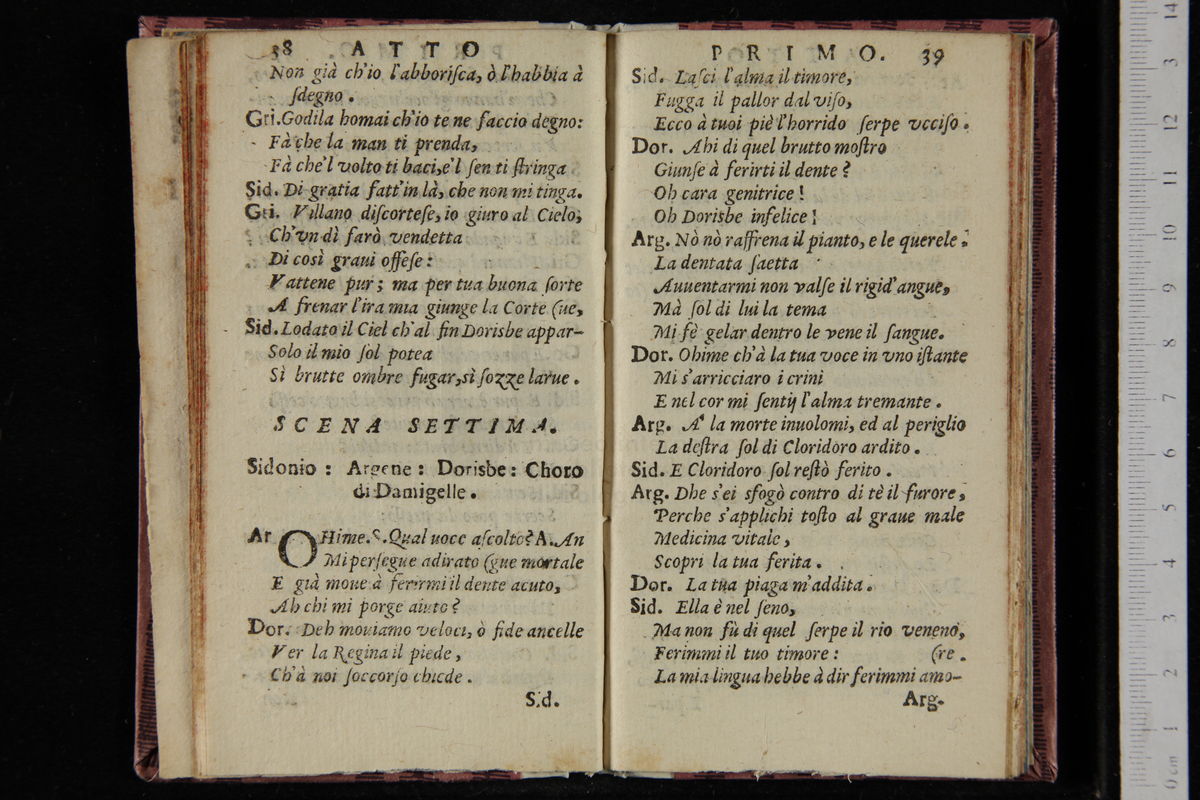 38 ATTO
Non già ch'io l'abboriſca, ò l'habbia à
ſdegno.
Gri. Godila homai ch'io te ne faccio degno:
Fà che la man ti prenda,
Fà che'l volto ti baci, e'l ſen ti ſtringa
Sid. Di gratia fatt'in là, che non mi tinga.
Gri. Villano diſcorteſe, io giuro al Cielo,
Ch'vn dì farò vendetta
Di così graui offeſe:
Vattene pur; ma per tua buona ſorte
A frenar l'ira mia giunge la Corte (ue,
Sid. Lodato il Ciel ch'al fin Dorisbe appar-
Solo il mio ſol potea
Sì brutte ombre fugar, sì ſozze larue.
SCENA SETTIMA.
Sidonio: Argene: Dorisbe: Choro
di Damigelle.
Ar OHime. S. Qual uoce aſcolto? A. An
Mi perſegue adirato (gue mortale
E già moue à ferirmi il dente acuto,
Ah chi mi porge aiuto?
Dor. Deh mouiamo veloci, ò fide ancelle
Ver la Regina il piede,
Ch'à noi ſoccorſo chiede.
Sid.
PRIMO. 39
Sid. Laſci l'alma il timore,
Fugga il pallor dal viſo,
Ecco à tuoi piè l'horrido ſerpe vcciſo.
Dor. Ahi di quel brutto moſtro
Giunſe à ferirti il dente?
Oh cara genitrice!
Oh Dorisbe infelice!
Arg. Nò nò raffrena il pianto, e le querele:
La dentata ſaetta
Auuentarmi non valſe il rigid'angue,
Mà ſol di lui la tema
Mi fè gelar dentro le vene il ſangue.
Dor. Ohime ch'à la tua voce in vno iſtante
Mi s'arricciaro i crini
E nel cor mi ſentij l'alma tremante.
Arg. A' la morte inuolomi, ed al periglio
La deſtra ſol di Cloridoro ardito.
Sid. E Cloridoro ſol reſtò ferito.
Arg. Dhe s'ei sfogò contro di tè il furore,
Perche s'applichi toſto al graue male
Medicina vitale,
Scopri la tua ferita.
Dor. La tua piaga m'addita.
Sid. Ella è nel ſeno,
Ma non fù di quel ſerpe il rio veneno,
Ferimmi il tuo timore: (re.
La mia lingua hebbe à dir ferimmi amo-
Arg.